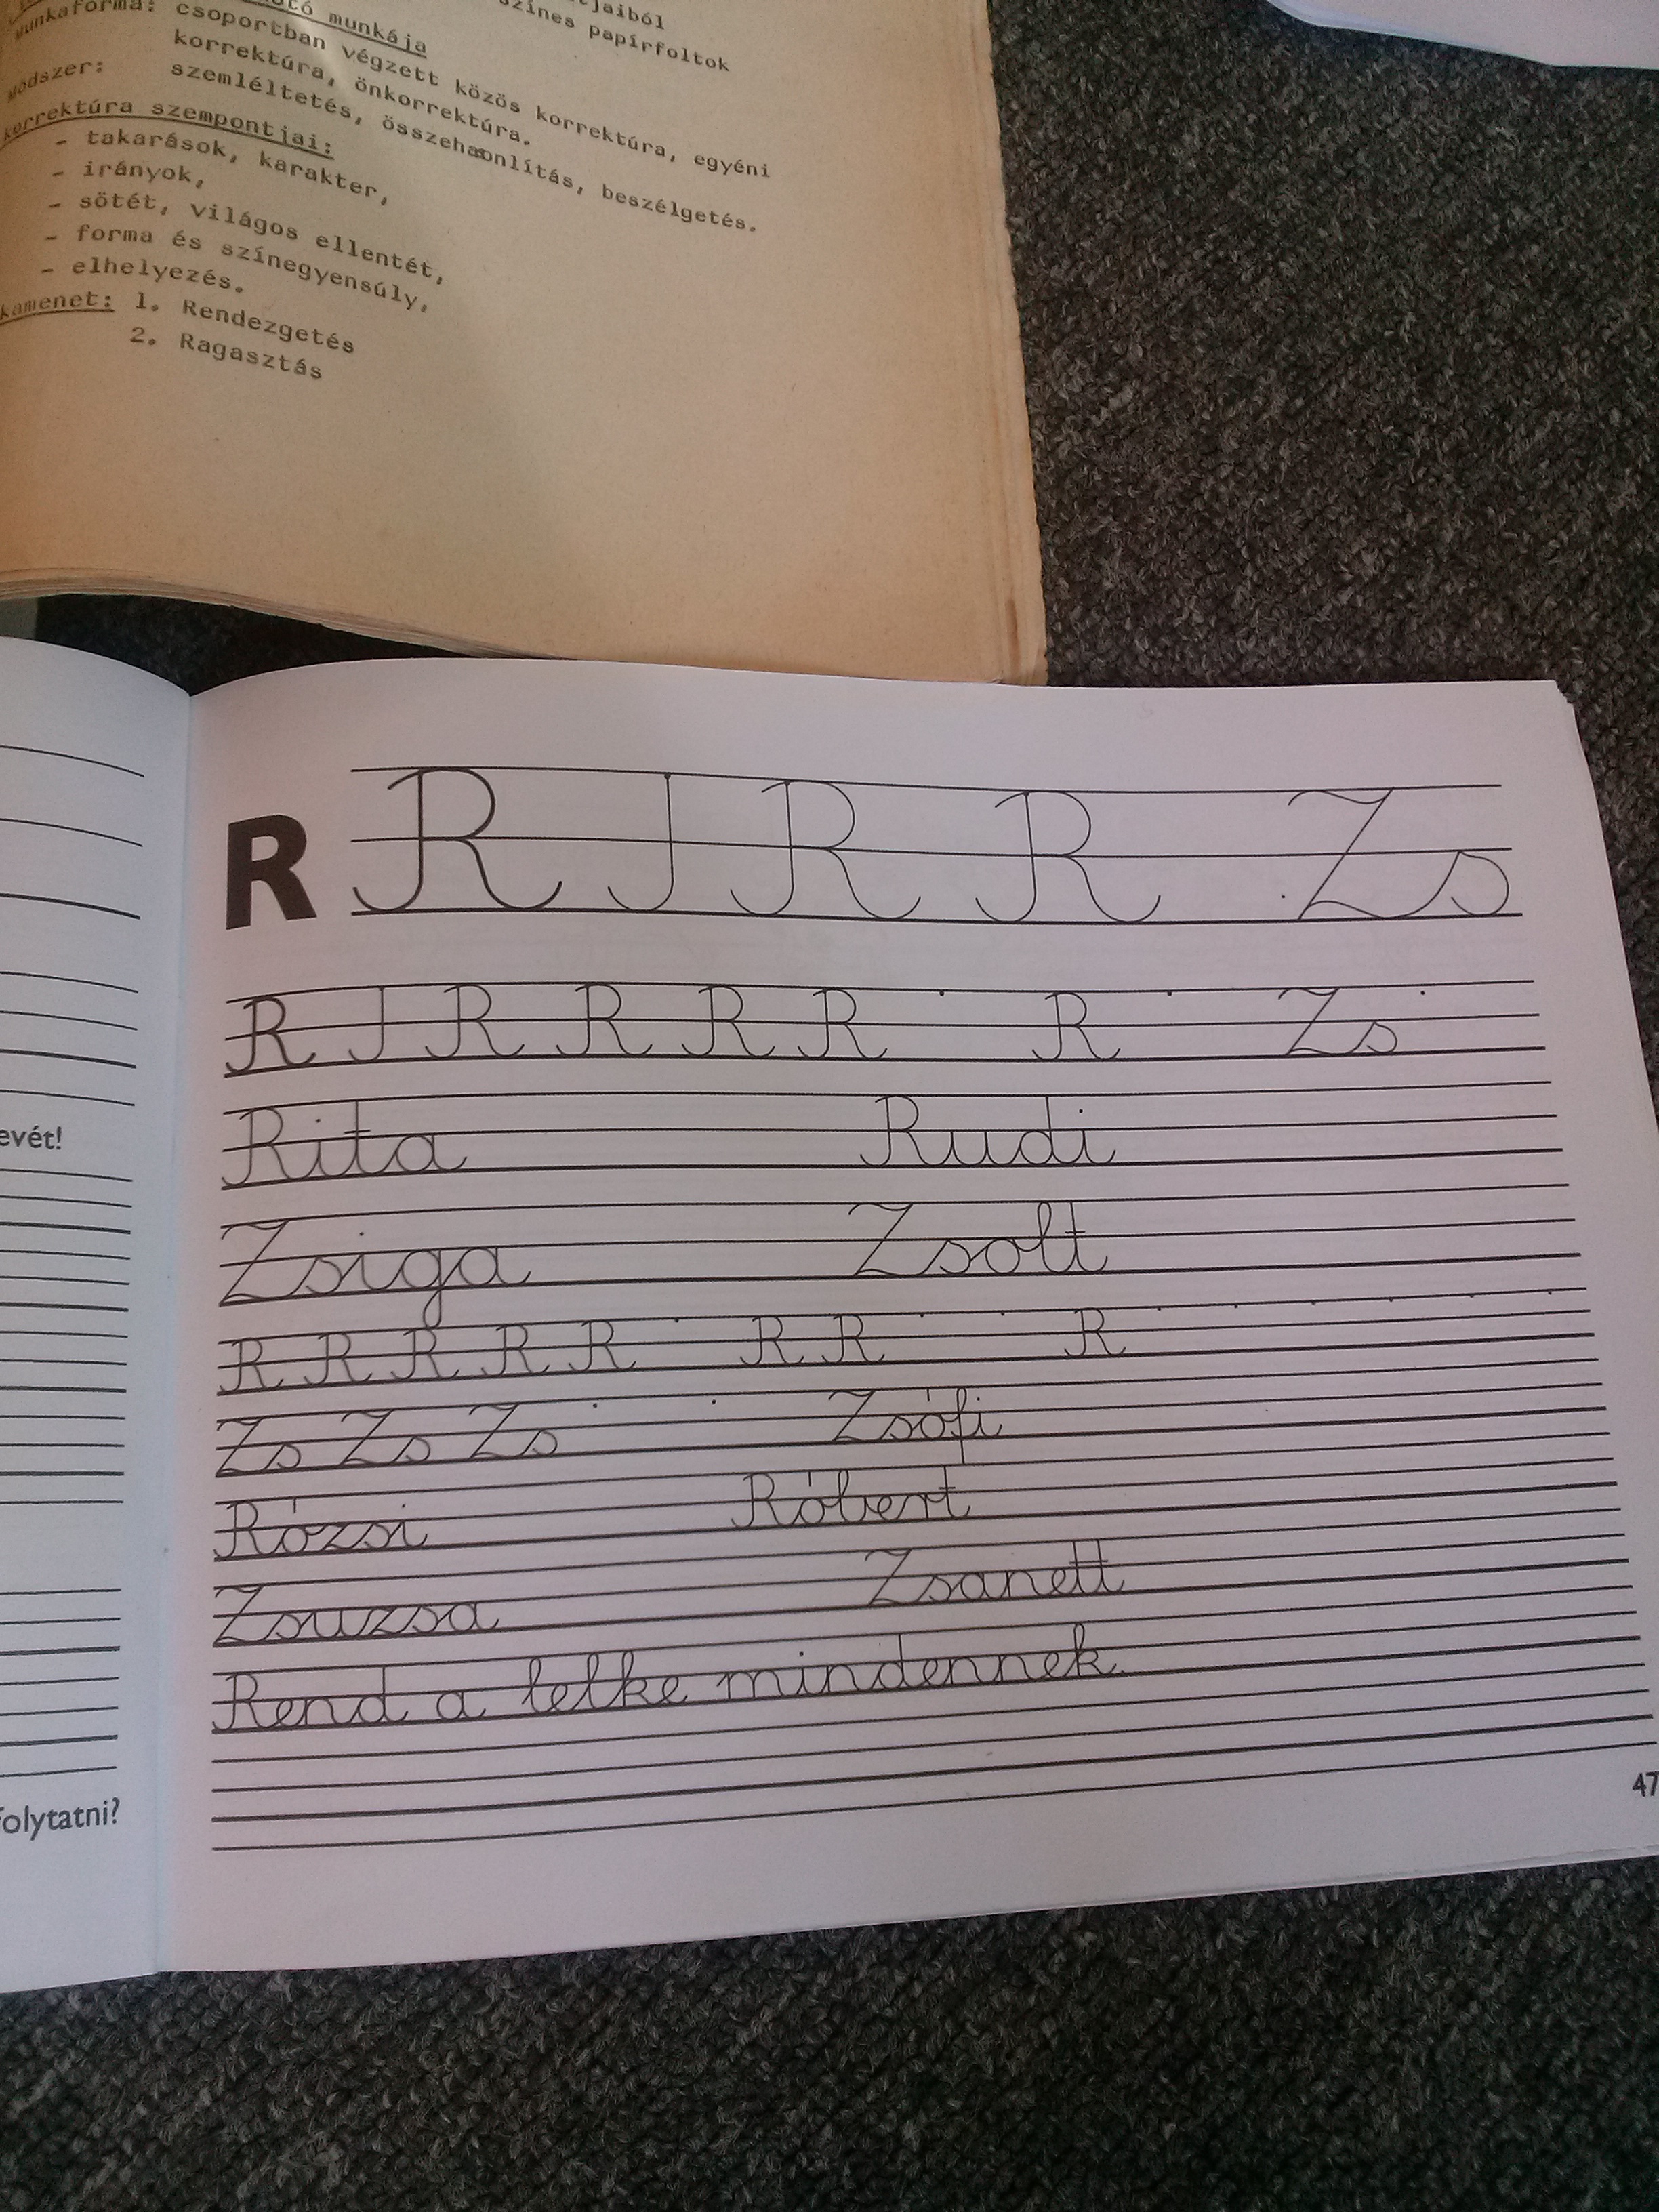 munkája
színes papírfoltok
Munkaforma: csoportban végzett közös korrektúra, egyéni
korrektúra, önkorrektúra.
Módszer: szemléltetés, összehasonlítás, beszélgetés.
korrektúra szempontjai:
- takarások, karakter,
- irányok,
- sötét, világos ellentét,
- forma és színegyensúly,
- elhelyezés.
kamenet: 1. Rendezgetés
2. Ragasztás
R R R R Zs
R R R R R R Zs
Rita Rudi
evét!
Zsiga Zsolt
R R R R R R R R
Zs Zs Zs Zsófi
Rózsi Róbert
Zsuzsa Zsanett
Rend a lelke mindennek.
folytatni?
47